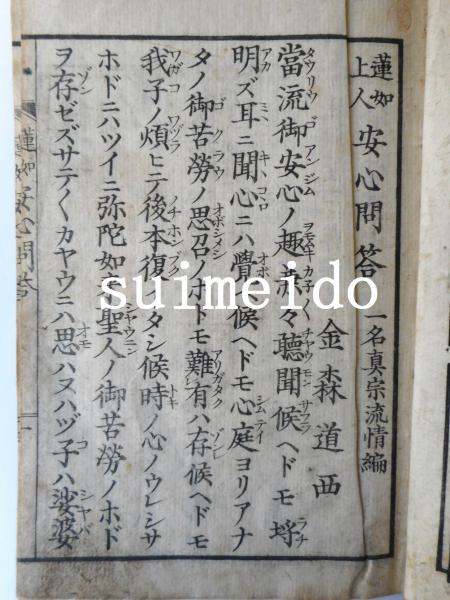 蓮如上人 安心問答 一名真宗流情編
金森道西
當流御安心ノ趣兼々聽聞候ヘドモ埒
明ズ耳ニ聞心ニハ覺候ヘドモ心庭ヨリアナ
タノ御苦勞ノ思召ノホドモ難有ハ存候ヘドモ
我子ノ煩ヒテ後本復イタシ候時ノ心ノウレシサ
ホドニハツイニ弥陀如來聖人ノ御苦勞ノホド
ヲ存ゼズサテ〱カヤウニハ思ハヌハヅ子ハ娑婆
蓮如安心問答
一
suimeido